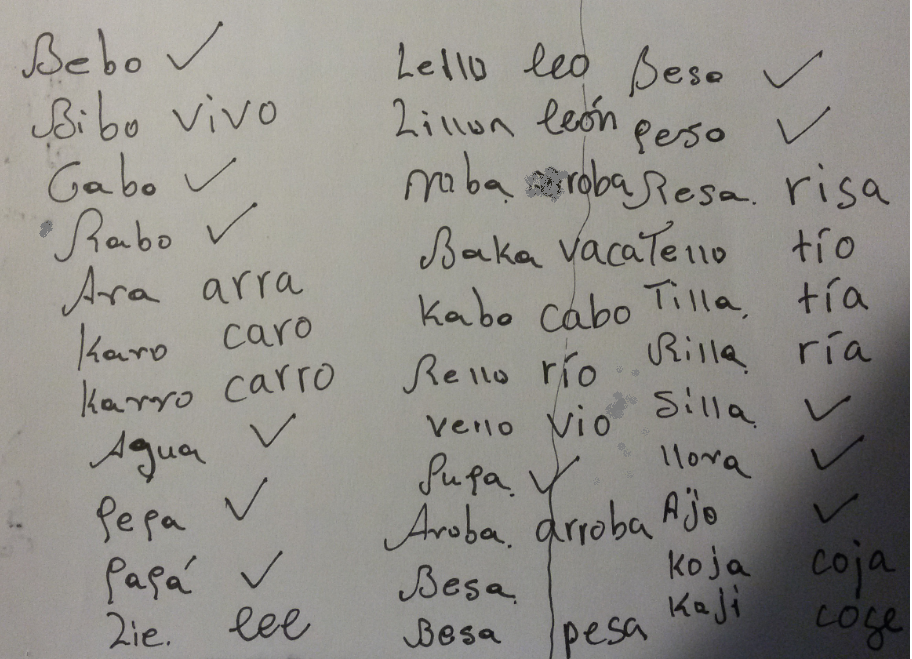 Bebo ✓ Lello leo Beso ✓
Bibo vivo Lillon león peso ✓
Gabo ✓ roba Resa. risa
Rabo ✓ Baka vaca Tello tío
Ara arra Kabo cabo Tilla. tía
Karo caro Rello río Rilla. ría
Karro carro vello vio Silla. ✓
Agua ✓ Pupa. ✓ llora ✓
Pepa ✓ Aroba. arroba Ajo ✓
Papá ✓ Besa. Koja coja
Lie. lee Besa pesa Kaji coge